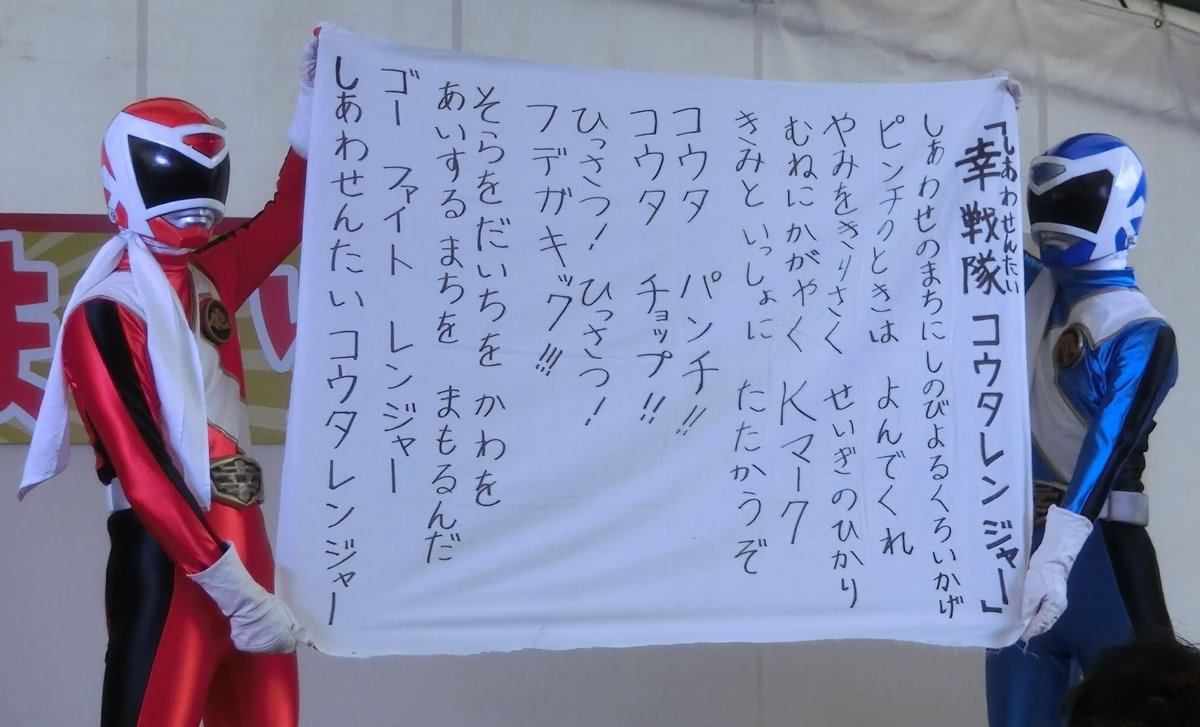 「幸戦隊コウタレンジャー」
しあわせんたい
しあわせのまちにしのびよるくろいかげ
ピンチのときは よんでくれ
やみをきりさく せいぎのひかり
むねにかがやく Kマーク
きみと いっしょに たたかうぞ
コウタ パンチ!!
コウタ チョップ!!
ひっさつ! ひっさつ!
フデガキック!!!
そらをだいちを かわを
あいするまちを まもるんだ
ゴー ファイト レンジャー
しあわせんたい コウタレンジャー